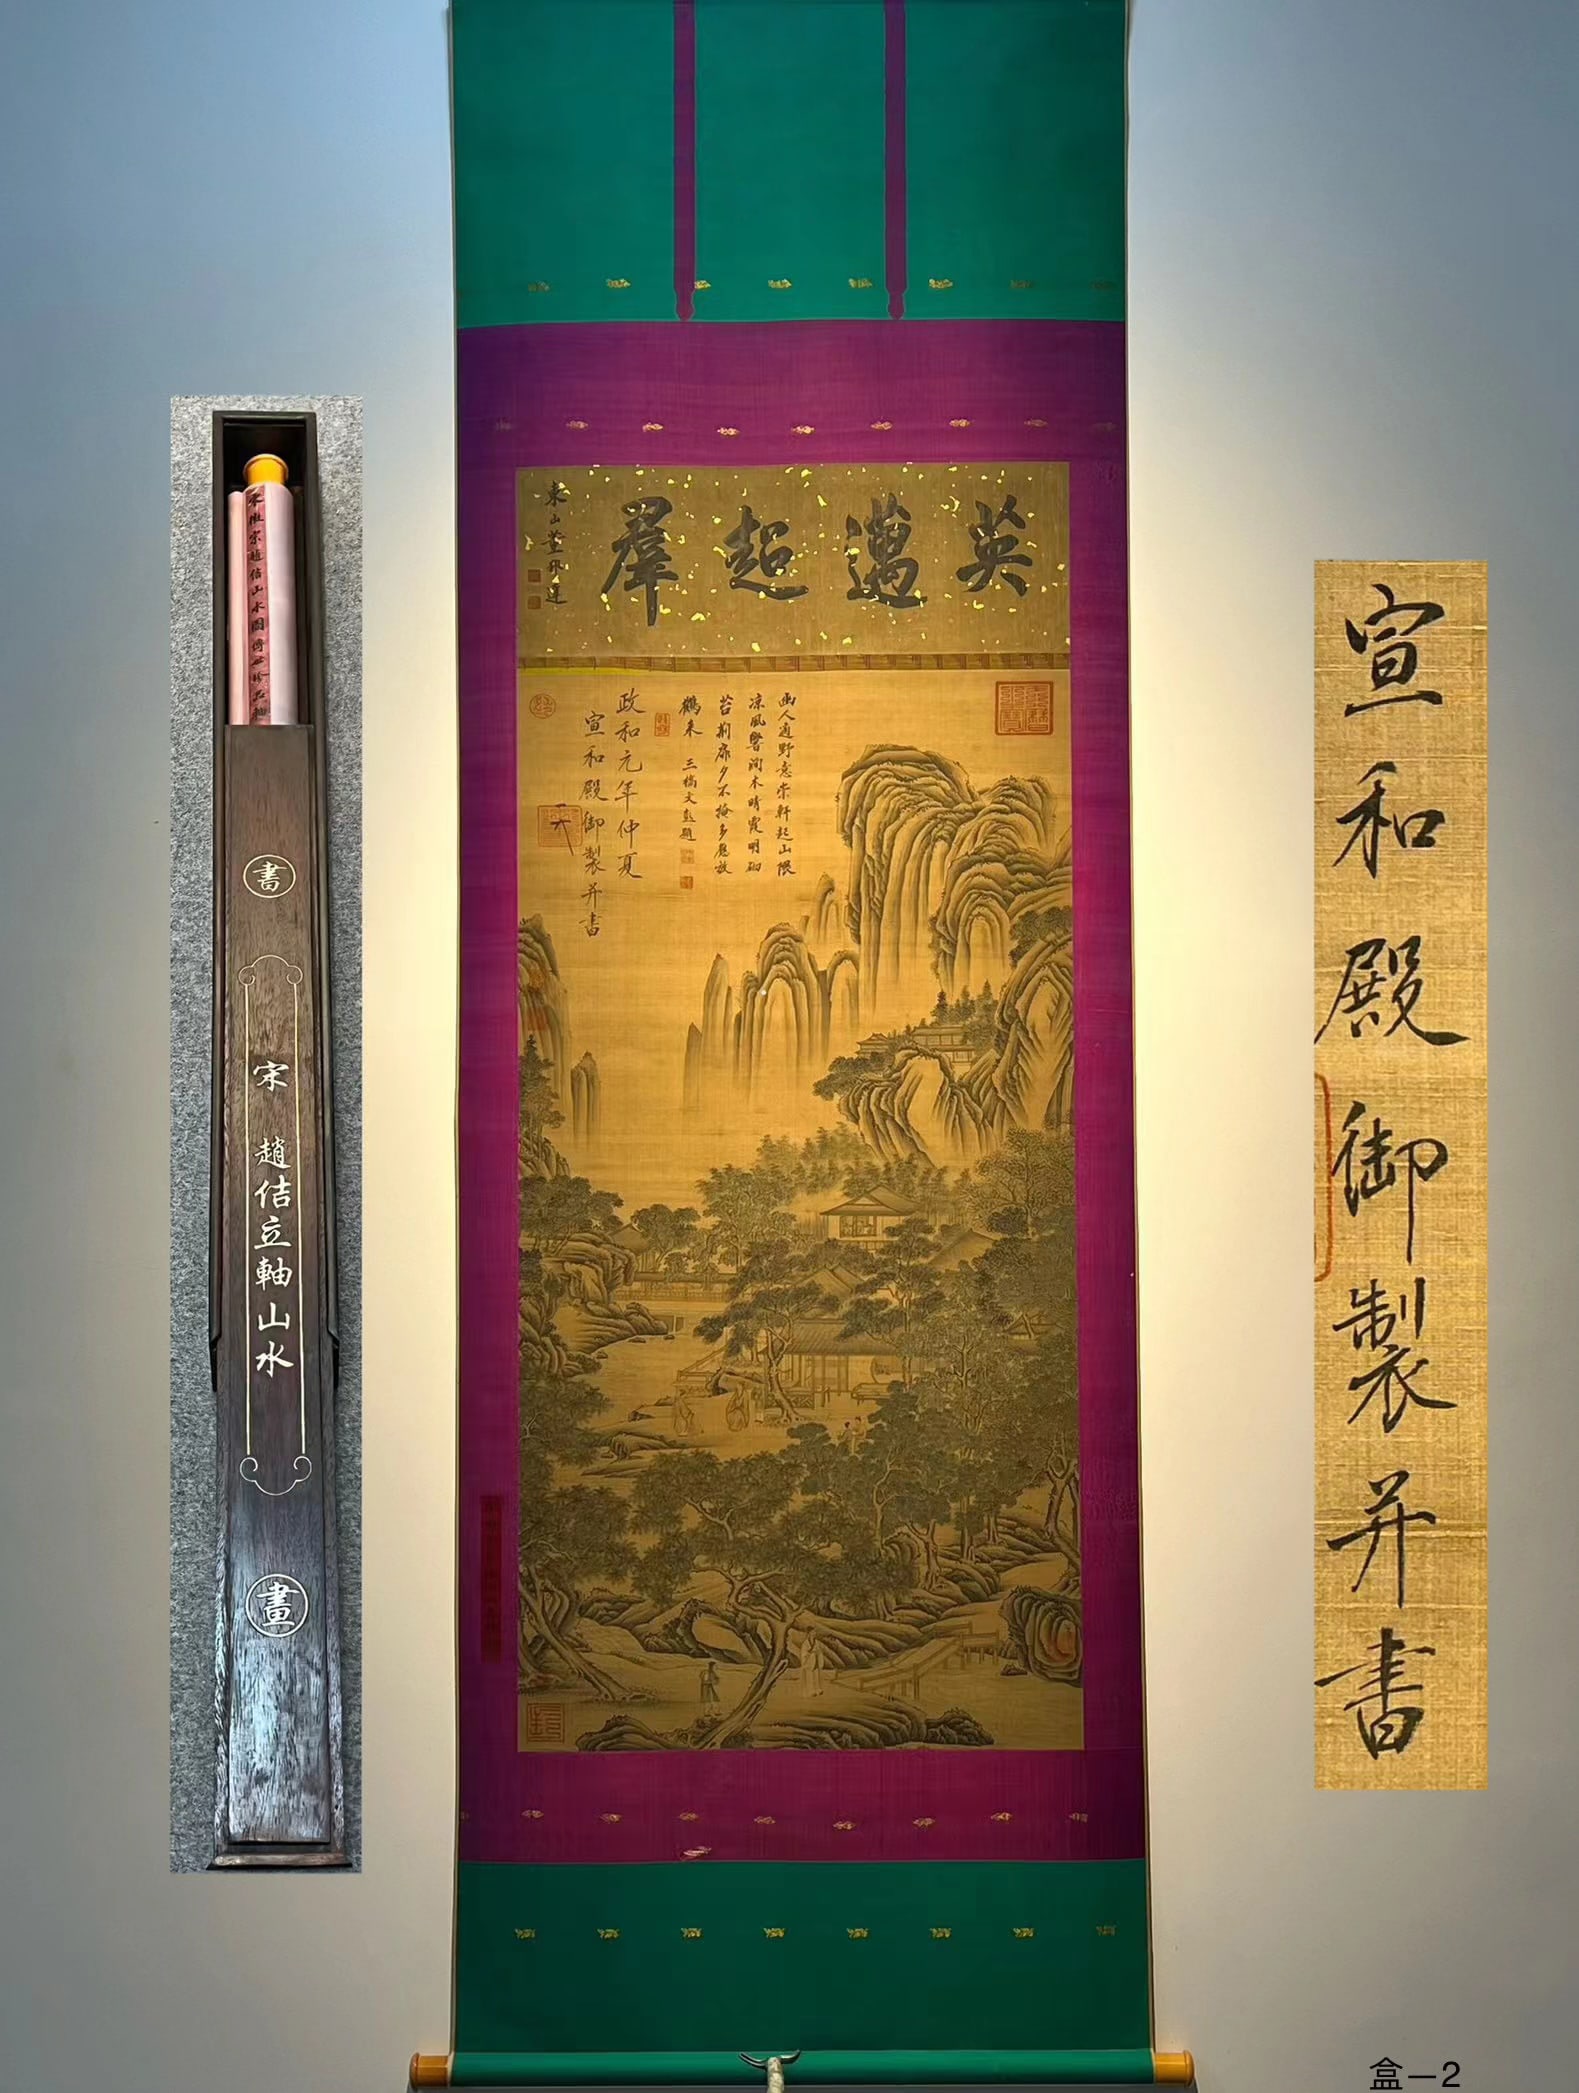 英邁超羣
東山董邦達
幽人適野意崇軒起山隈
凉風響澗木晴霞明砌
苔荆扉夕不掩多應放
鶴來 三橋文彭題
政和元年仲夏
宣和殿御製并書
宋徽宗趙佶山水圖傳世珍品
書
宋 趙佶立軸山水
畫
宣和殿御製并書
盒—2